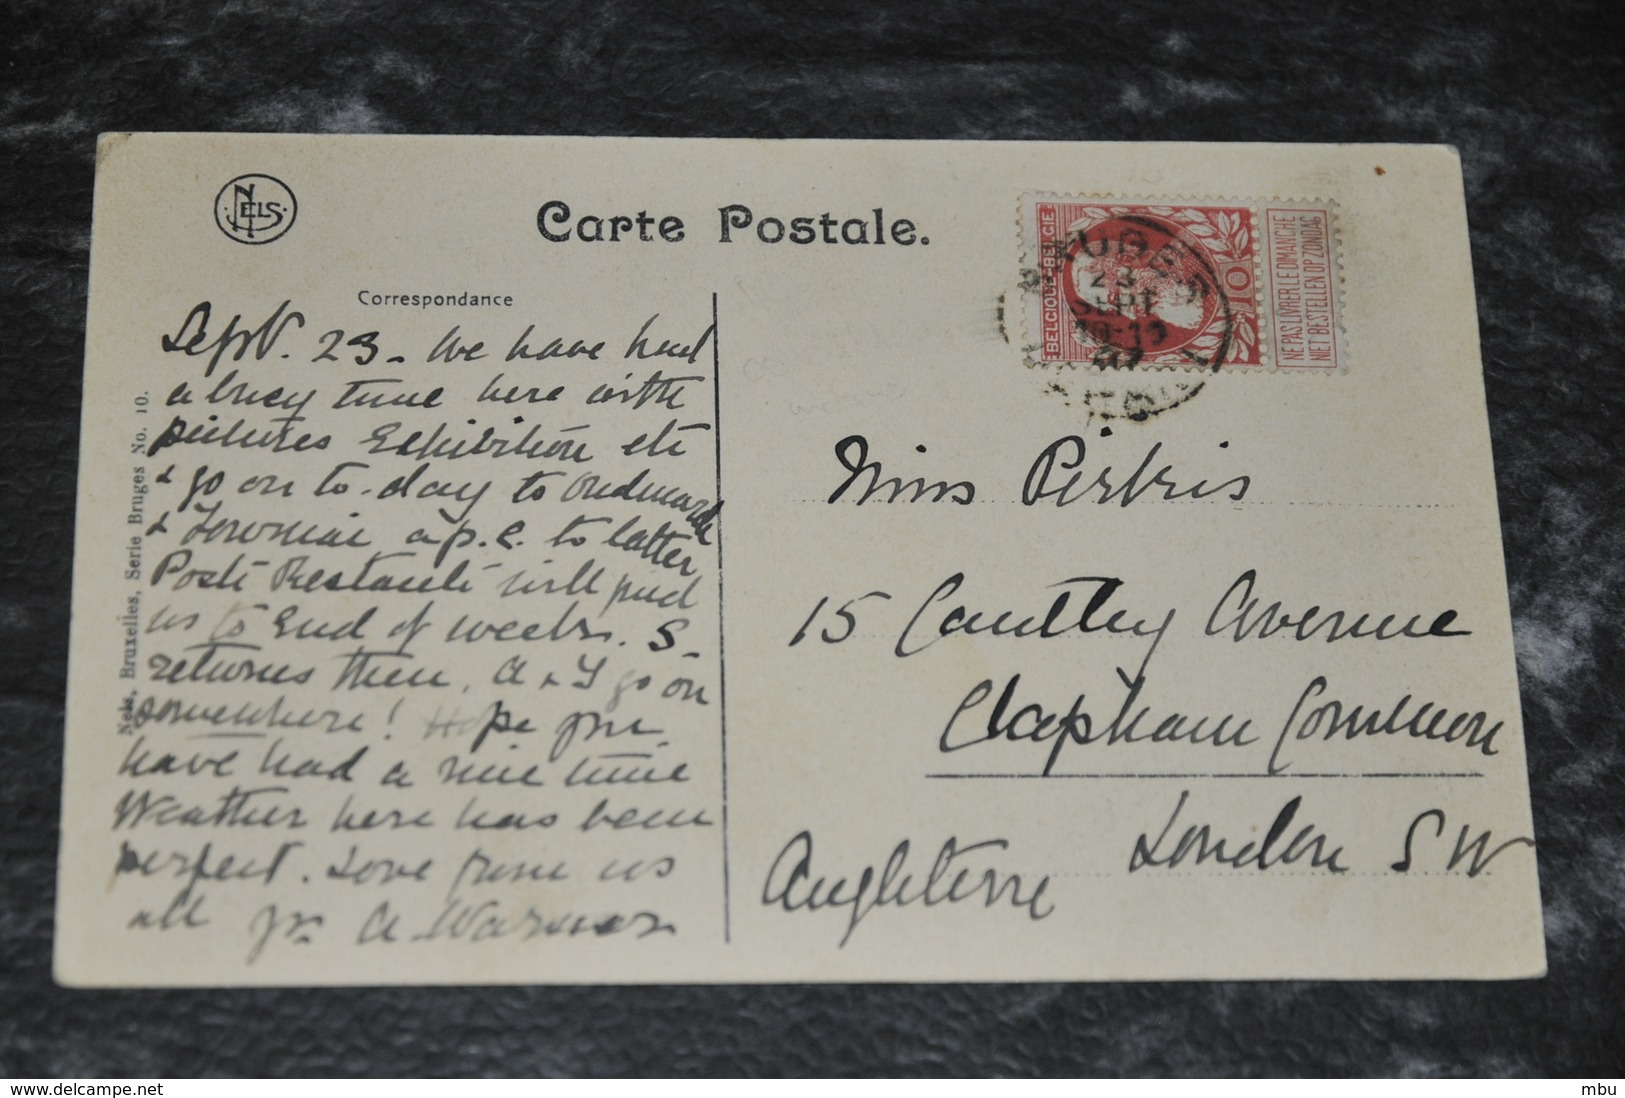 NELS
Carte Postale.
Correspondance
Sept. 23 - We have had
a busy time here with
pictures Exhibition etc
& go on to-day to Oudenarde
& Tournai a p.c. to latter
Poste Restante will find
us to End of week. S-
returns then, A & I go on
somewhere! Hope you
have had a nice time
Weather here has been
perfect. Love from us
all yr A Warner
Nels, Bruxelles, Serie Bruges No. 10.
BELGIQUE-BELGIE
10
NE PAS LIVRER LE DIMANCHE
NIET BESTELLEN OP ZONDAG
BRUGES
23
SEPT
07
Miss Perkis
15 Cautley Avenue
Clapham Common
London S W
Angleterre
www.delcampe.net
mbu